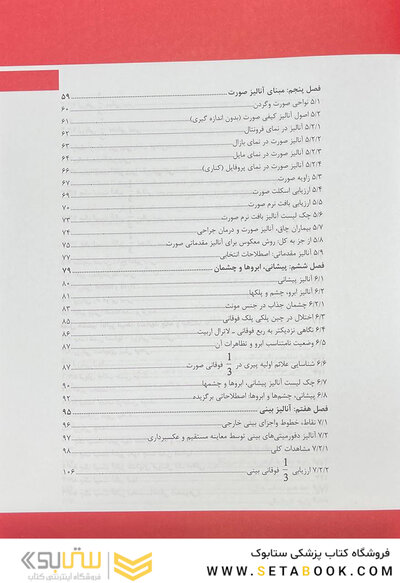 فصل پنجم: مبنای آنالیز صورت ۵۹
۵/۱ نواحی صورت وگردن ۶۰
۵/۲ اصول آنالیز کیفی صورت (بدون اندازه گیری) ۶۱
۵/۲/۱ آنالیز در نمای فرونتال ۶۲
۵/۲/۲ آنالیز صورت در نمای بازال ۶۳
۵/۲/۳ آنالیز صورت در نمای مایل ۶۴
۵/۲/۴ آنالیز صورت در نمای پروفایل (کناری) ۶۶
۵/۳ زاویه صورت ۶۷
۵/۴ ارزیابی اسکلت صورت ۶۹
۵/۵ ارزیابی بافت نرم صورت ۷۰
۵/۶ چک لیست آنالیز بافت نرم صورت ۷۳
۵/۷ بیماران چاق، آنالیز صورت و درمان جراحی ۷۴
۵/۸ از جز به کل: روش معکوس برای آنالیز مقدماتی صورت ۷۵
۵/۹ آنالیز مقدماتی: اصطلاحات انتخابی ۷۷
فصل ششم: پیشانی، ابروها و چشمان ۷۹
۶/۱ آنالیز پیشانی ۸۰
۶/۲ آنالیز ابرو، چشم و پلکها ۸۱
۶/۲/۱ چشمان جذاب در جنس مونث ۸۳
۶/۳ اختلال در چین پلکی پلک فوقانی ۸۵
۶/۴ نگاهی نزدیکتر به ربع فوقانی ـ لاترال اربیت ۸۶
۶/۵ وضعیت نامتناسب ابرو و تظاهرات آن ۸۷
۶/۶ شناسایی علائم اولیه پیری در 1/3 فوقانی صورت ۸۷
۶/۷ چک لیست آنالیز پیشانی، ابروها و چشمها ۹۰
۶/۸ پیشانی، چشم‌ها و ابروها: اصطلاحاتی برگزیده ۹۲
فصل هفتم: آنالیز بینی ۹۵
۷/۱ نقاط، خطوط واجزای بینی خارجی ۹۶
۷/۲ آنالیز دفورمیتی‌های بینی توسط معاینه مستقیم و عکسبرداری ۹۷
۷/۲/۱ مشاهدات کلی ۹۸
۷/۲/۲ ارزیابی 1/3 فوقانی بینی ۱۰۶
فروشگاه کتاب پزشکی ستابوک
WWW.SETABOOK.COM
ستابوک
فروشگاه اینترنتی کتاب